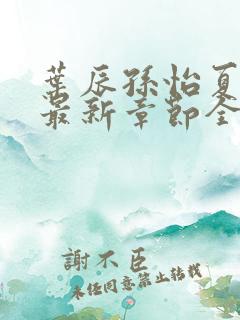 葉辰孫怡夏
最新章節全
謝不臣
未经同意禁止转载